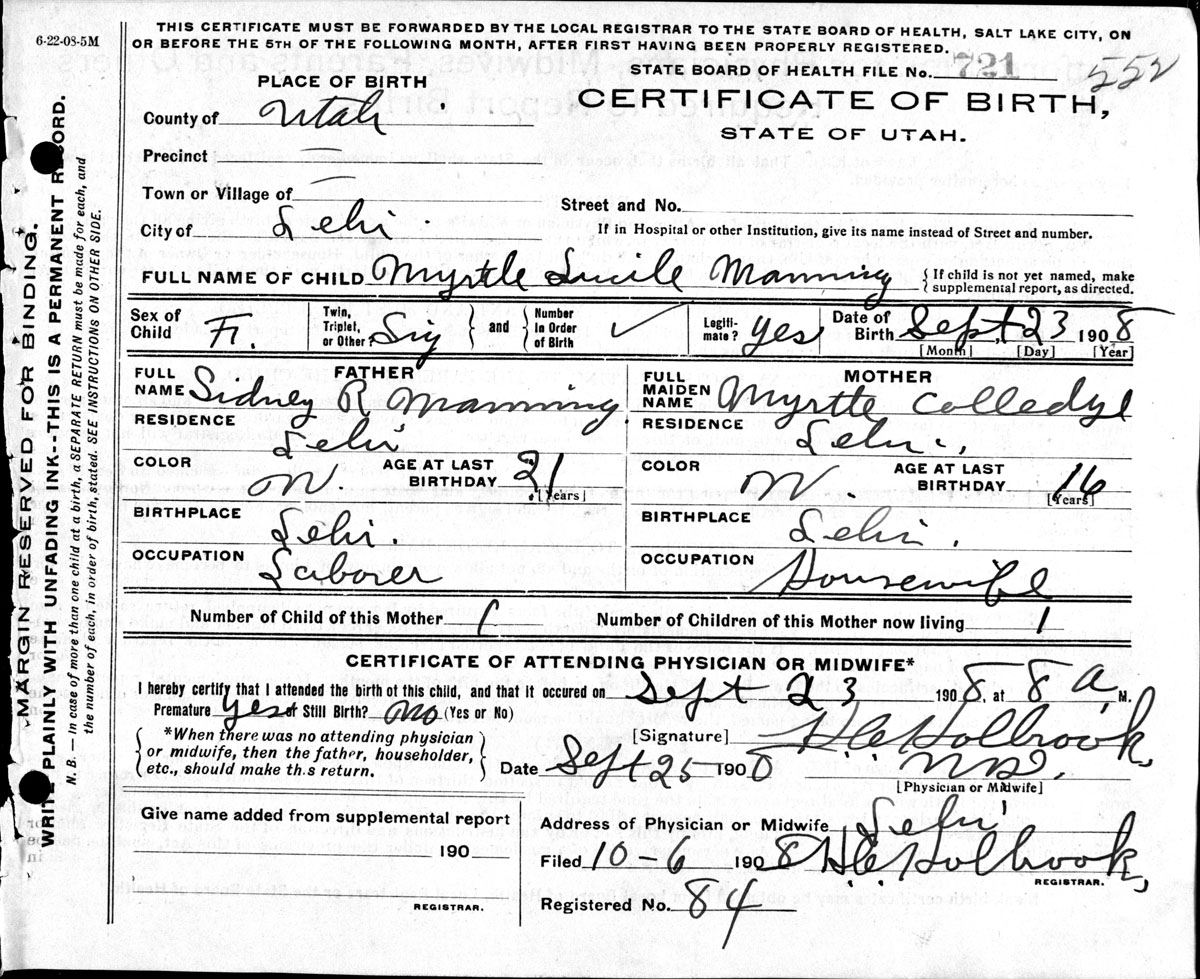 6-22-08-5M
THIS CERTIFICATE MUST BE FORWARDED BY THE LOCAL REGISTRAR TO THE STATE BOARD OF HEALTH, SALT LAKE CITY, ON
OR BEFORE THE 5TH OF THE FOLLOWING MONTH, AFTER FIRST HAVING BEEN PROPERLY REGISTERED.
STATE BOARD OF HEALTH FILE No. 721 552
PLACE OF BIRTH
CERTIFICATE OF BIRTH,
STATE OF UTAH.
County of Utah.
Precinct
Town or Village of
Street and No.
City of Lehi.
If in Hospital or other Institution, give its name instead of Street and number.
FULL NAME OF CHILD Myrtle Lucile Manning { If child is not yet named, make
supplemental report, as directed.
Sex of Child F. Twin, Triplet, or Other? Sig } and { Number In Order of Birth ✓ Legiti-mate? yes Date of Birth Sept. 23 1908
[Month] [Day] [Year]
FATHER
FULL NAME Sidney R Manning.
RESIDENCE Lehi
COLOR W. AGE AT LAST BIRTHDAY 21 [Years]
BIRTHPLACE Lehi.
OCCUPATION Laborer
MOTHER
FULL MAIDEN NAME Myrtle
RESIDENCE Lehi.
COLOR W. AGE AT LAST BIRTHDAY 16 [Years]
BIRTHPLACE Lehi.
OCCUPATION Housewife
Number of Child of this Mother 1 Number of Children of this Mother now living 1
CERTIFICATE OF ATTENDING PHYSICIAN OR MIDWIFE*
I hereby certify that I attended the birth of this child, and that it occured on Sept 23 1908, at 8 a. M.
Premature yes or Still Birth? no (Yes or No)
{ *When there was no attending physician
or midwife, then the father, householder,
etc., should make th.s return. }
[Signature] H.C. Holbrook,
Date Sept 25 1900 M.D.
[Physician or Midwife]
Give name added from supplemental report
190
REGISTRAR.
Address of Physician or Midwife Lehi
Filed 10-6 1908 H.C. Holbrook,
REGISTRAR.
Registered No. 84
MARGIN RESERVED FOR BINDING.
WRITE PLAINLY WITH UNFADING INK--THIS IS A PERMANENT RECORD.
N. B. — In case of more than one child at a birth, a SEPARATE RETURN must be made for each, and
the number of each, in order of birth, stated. SEE INSTRUCTIONS ON OTHER SIDE.